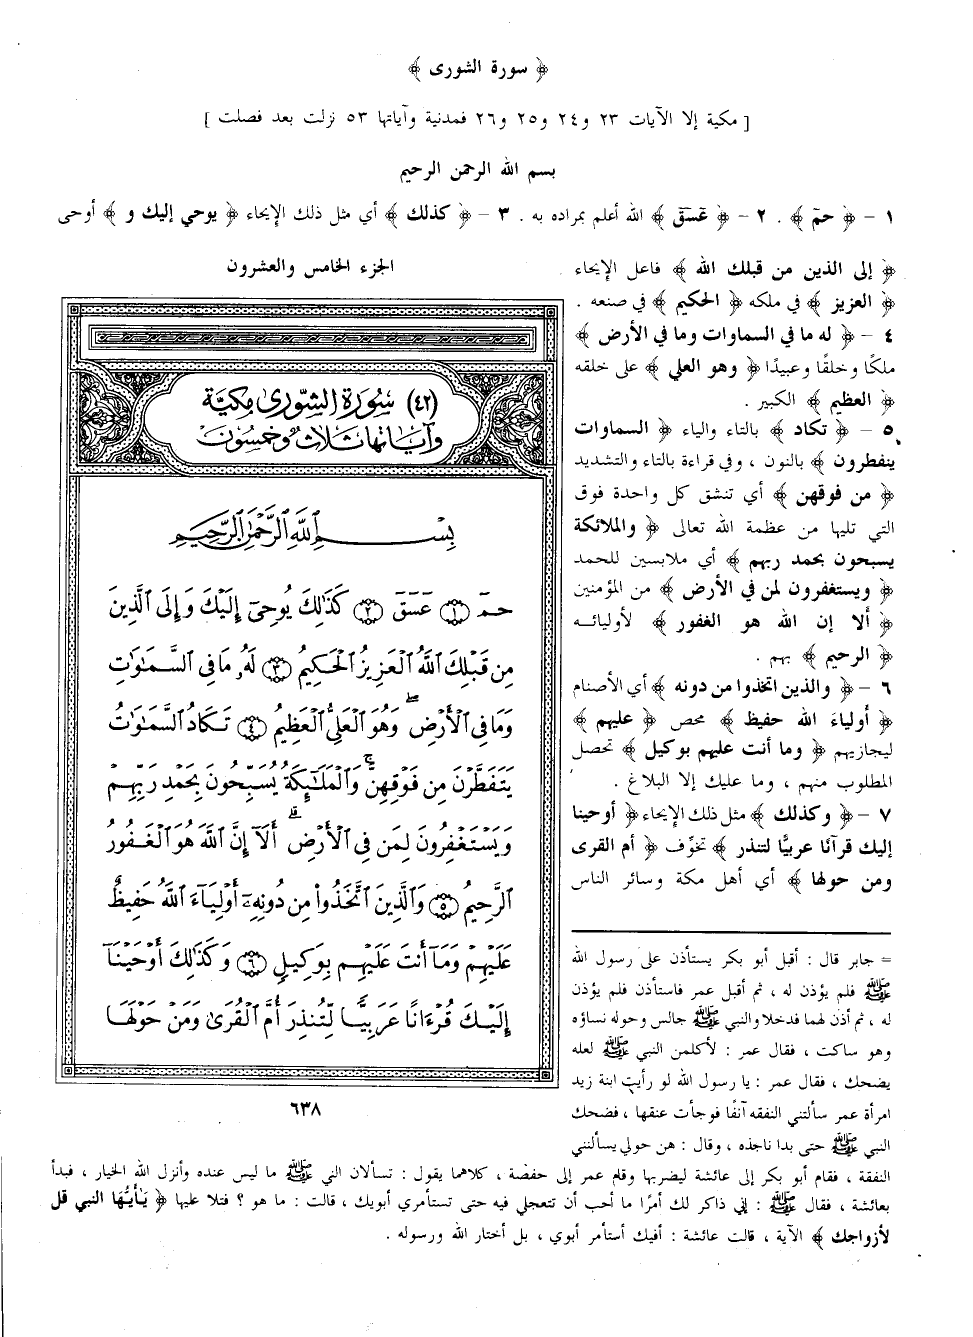 ﴿ سورة الشورى ﴾
[ مكية إلا الآيات ٢٣ و٢٤ و٢٥ و٢٦ فمدنية وآياتها ٥٣ نزلت بعد فصلت ]
بسم الله الرحمن الرحيم
١ – ﴿ حمٓ ﴾ . ٢ – ﴿ عٓسٓقٓ ﴾ الله أعلم بمراده به . ٣ – ﴿ كذلك ﴾ أي مثل ذلك الإيحاء ﴿ يوحي إليك و ﴾ أوحى
﴿ إلى الذين من قبلك الله ﴾ فاعل الإيحاء
﴿ العزيز ﴾ في ملكه ﴿ الحكيم ﴾ في صنعه .
٤ – ﴿ له ما في السماوات وما في الأرض ﴾
ملكًا وخلقًا وعبيدًا ﴿ وهو العلي ﴾ على خلقه
﴿ العظيم ﴾ الكبير .
٥ – ﴿ تكاد ﴾ بالتاء والياء ﴿ السماوات
ينفطرون ﴾ بالنون ، وفي قراءة بالتاء والتشديد
﴿ من فوقهن ﴾ أي تنشق كل واحدة فوق
التي تليها من عظمة الله تعالى ﴿ والملائكة
يسبحون بحمد ربهم ﴾ أي ملابسين للحمد
﴿ ويستغفرون لمن في الأرض ﴾ من المؤمنين
﴿ ألا إن الله هو الغفور ﴾ لأوليائه
﴿ الرحيم ﴾ بهم .
٦ – ﴿ والذين اتخذوا من دونه ﴾ أي الأصنام
﴿ أولياءَ الله حفيظ ﴾ محص ﴿ عليهم ﴾
ليجازيهم ﴿ وما أنت عليهم بوكيل ﴾ تحصل
المطلوب منهم ، وما عليك إلا البلاغ .
٧ – ﴿ وكذلك ﴾ مثل ذلك الإيحاء ﴿ أوحينا
إليك قرآنًا عربيًّا لتنذر ﴾ تخوِّف ﴿ أم القرى
ومن حولها ﴾ أي أهل مكة وسائر الناس
الجزء الخامس والعشرون
(٤٢) سُورَةُ الشُّورَىٰ مَكِّيَّة
وَآيَاتُهَا ثَلَاثٌ وَخَمْسُونَ
بِسْمِ اللَّهِ الرَّحْمَٰنِ الرَّحِيمِ
حمٓ ۝١ عٓسٓقٓ ۝٢ كَذَٰلِكَ يُوحِىٓ إِلَيْكَ وَإِلَى ٱلَّذِينَ
مِن قَبْلِكَ ٱللَّهُ ٱلْعَزِيزُ ٱلْحَكِيمُ ۝٣ لَهُۥ مَا فِى ٱلسَّمَٰوَٰتِ
وَمَا فِى ٱلْأَرْضِۖ وَهُوَ ٱلْعَلِىُّ ٱلْعَظِيمُ ۝٤ تَكَادُ ٱلسَّمَٰوَٰتُ
يَتَفَطَّرْنَ مِن فَوْقِهِنَّۚ وَٱلْمَلَٰٓئِكَةُ يُسَبِّحُونَ بِحَمْدِ رَبِّهِمْ
وَيَسْتَغْفِرُونَ لِمَن فِى ٱلْأَرْضِۗ أَلَآ إِنَّ ٱللَّهَ هُوَ ٱلْغَفُورُ
ٱلرَّحِيمُ ۝٥ وَٱلَّذِينَ ٱتَّخَذُوا۟ مِن دُونِهِۦٓ أَوْلِيَآءَ ٱللَّهُ حَفِيظٌ
عَلَيْهِمْ وَمَآ أَنتَ عَلَيْهِم بِوَكِيلٍ ۝٦ وَكَذَٰلِكَ أَوْحَيْنَآ
إِلَيْكَ قُرْءَانًا عَرَبِيًّا لِّتُنذِرَ أُمَّ ٱلْقُرَىٰ وَمَنْ حَوْلَهَا
٦٣٨
= جابر قال : أقبل أبو بكر يستأذن على رسول الله
ﷺ فلم يؤذن له ، ثم أقبل عمر فاستأذن فلم يؤذن
له ، ثم أذن لهما فدخلا والنبي ﷺ جالس وحوله نساؤه
وهو ساكت ، فقال عمر : لأكلمن النبي ﷺ لعله
يضحك ، فقال عمر : يا رسول الله لو رأيت ابنة زيد
امرأة عمر سألتني النفقه آنفًا فوجأت عنقها ، فضحك
النبي ﷺ حتى بدا ناجذه ، وقال : هن حولي يسألنني
النفقة ، فقام أبو بكر إلى عائشة ليضربها وقام عمر إلى حفصة ، كلاهما يقول : تسألان النبي ﷺ ما ليس عنده وأنزل الله الخيار ، فبدأ
بعائشة ، فقال ﷺ : إني ذاكر لك أمرًا ما أحب أن تتعجلي فيه حتى تستأمري أبويك ، قالت : ما هو ؟ فتلا عليها ﴿ يَٰأَيُّهَا النبي قل
لأزواجك ﴾ الآية ، قالت عائشة : أفيك أستأمر أبوي ، بل أختار الله ورسوله .